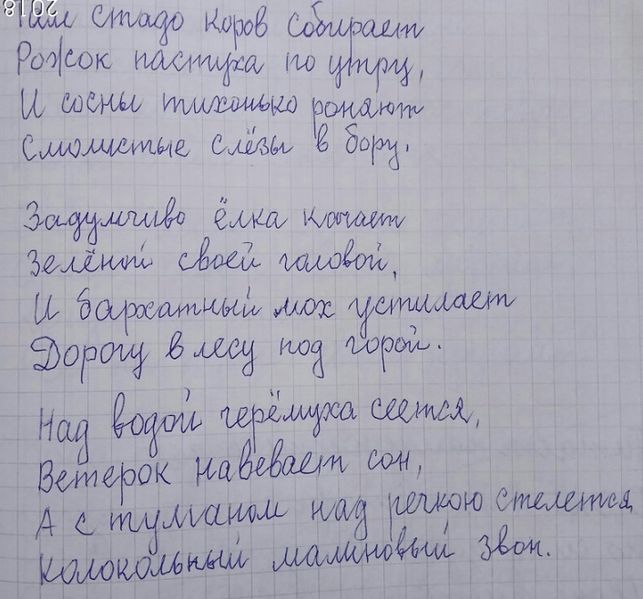 2018
Там стадо коров собирает
Рожок пастуха по утру,
И сосны тихонько роняют
Смолистые слёзы в бору.
Задумчиво ёлка качает
Зелёной своей головой,
И бархатный мох устилает
Дорогу в лесу под горой.
Над водой черёмуха сеется,
Ветерок навевает сон,
А с туманом над речкою стелется
Колокольный малиновый звон.